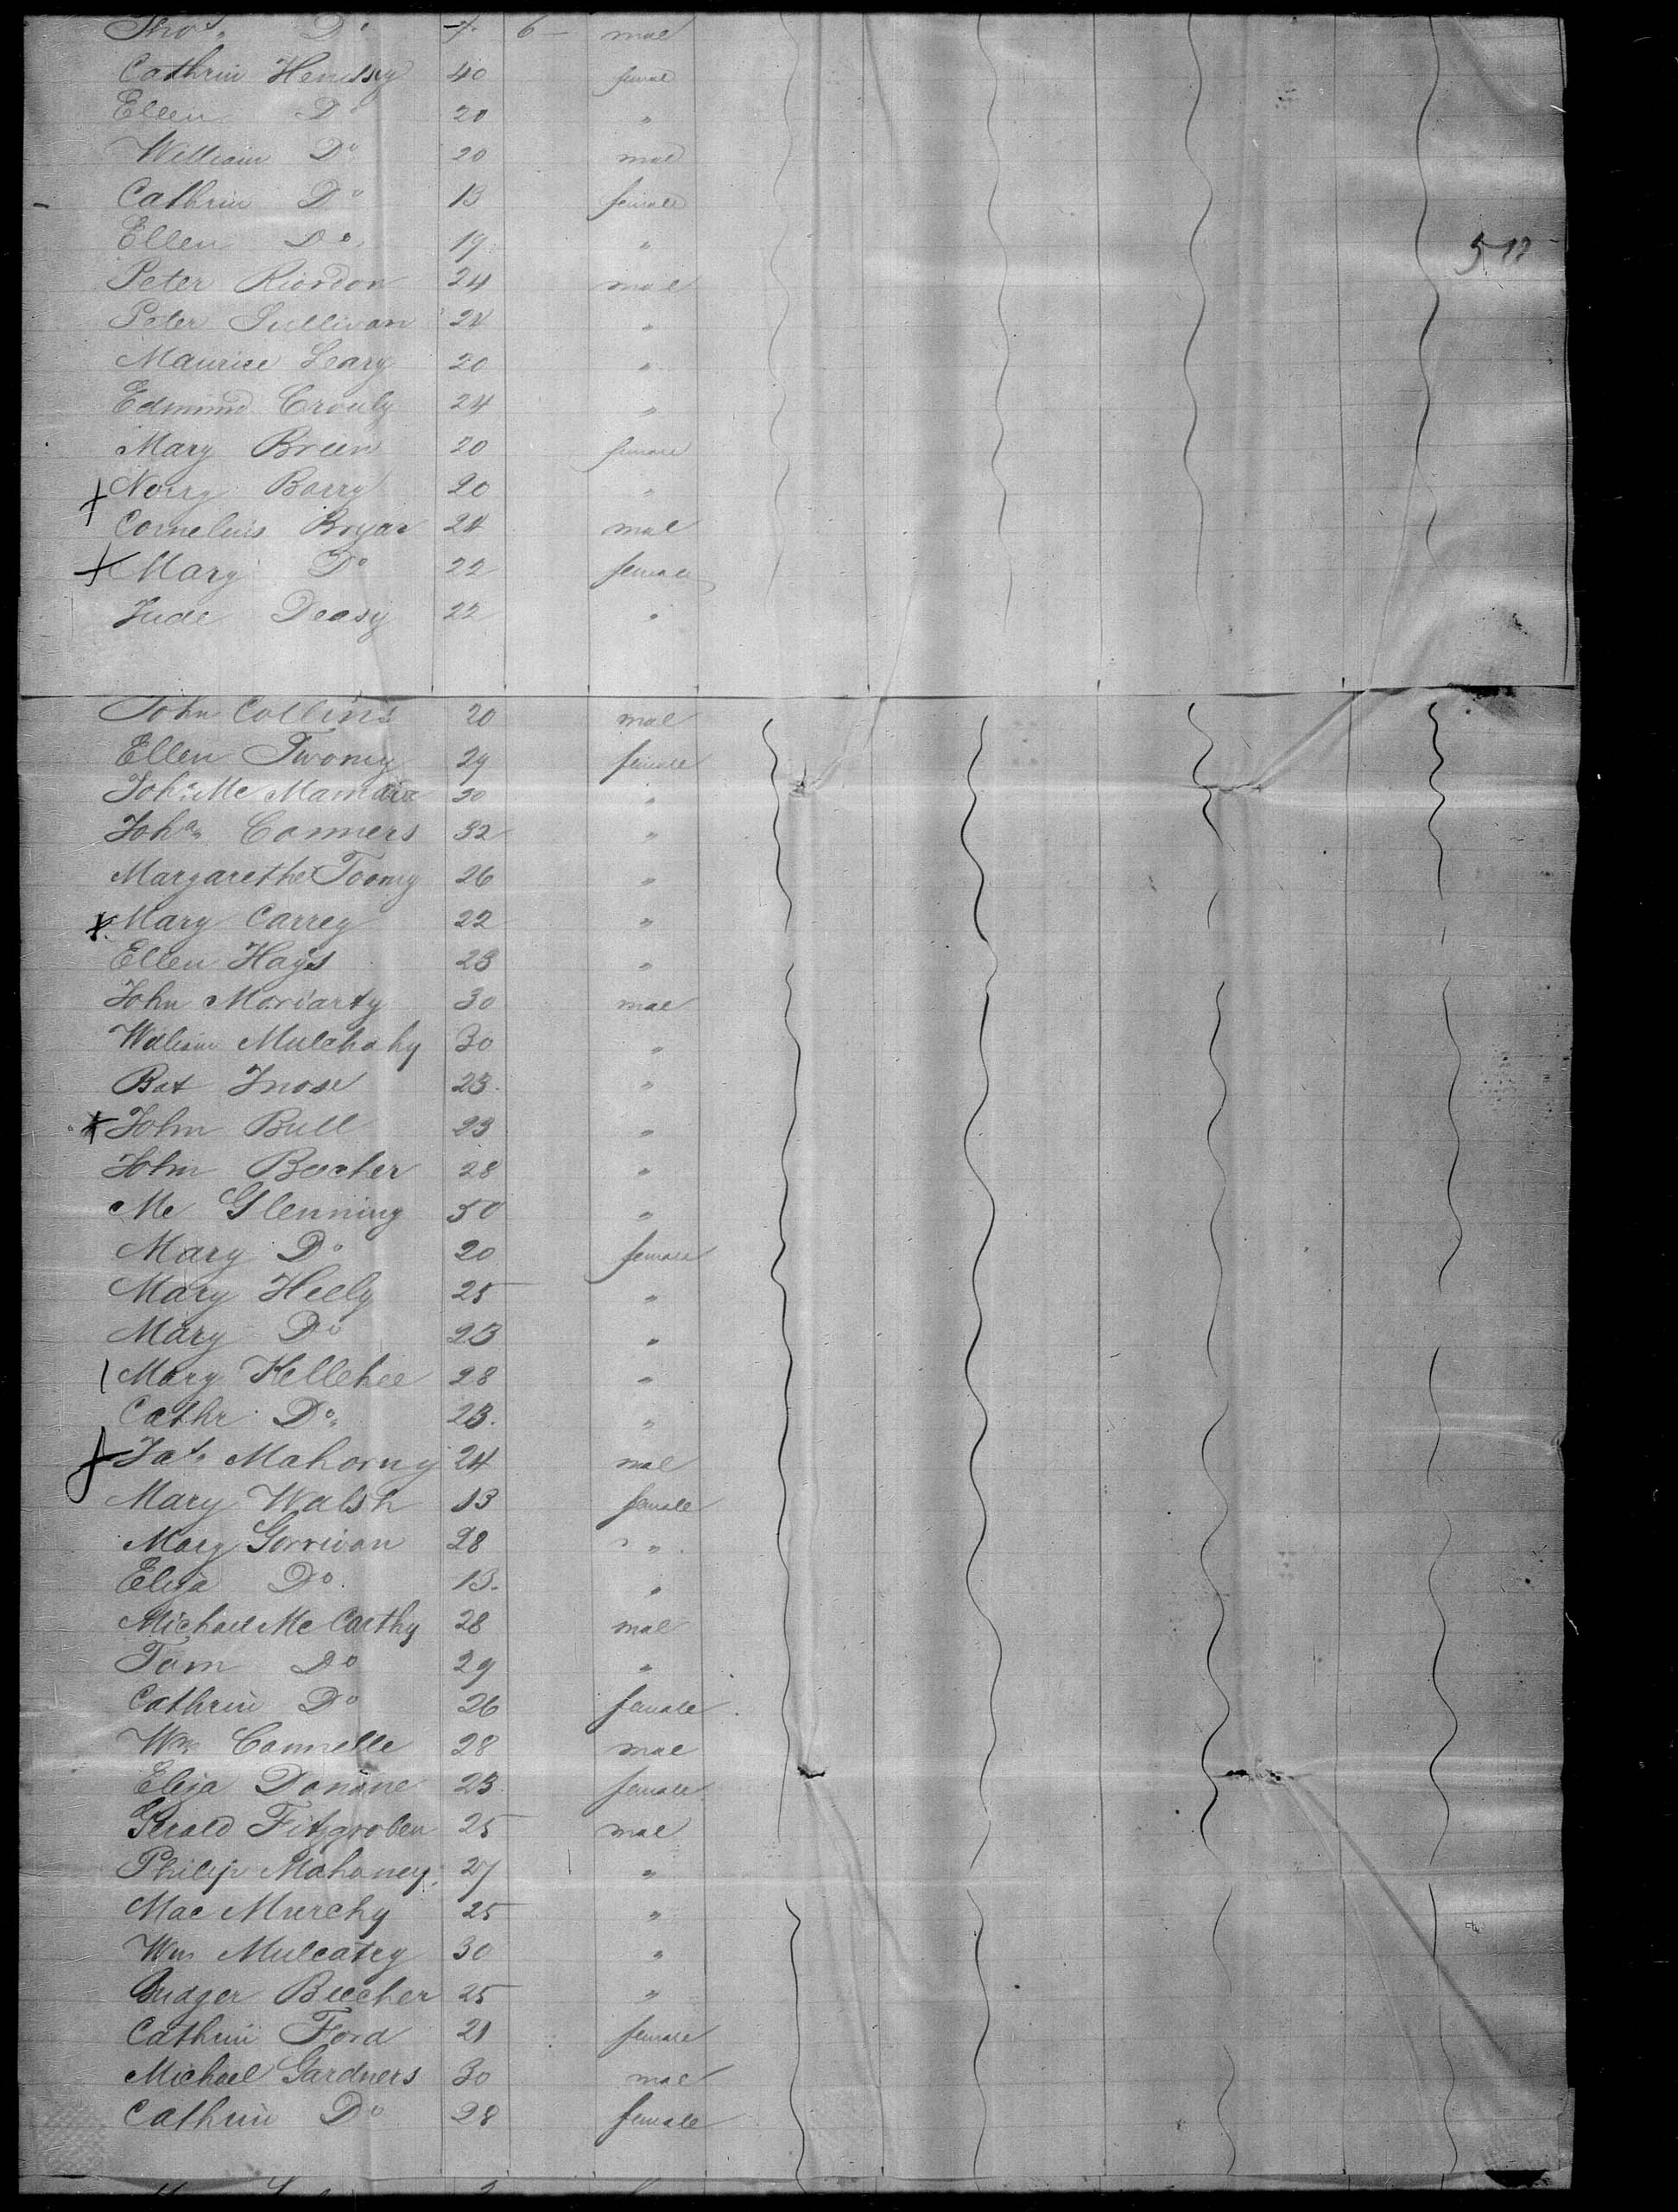 Thos. Do 7. 6 — mal
Cathrin Hendsey 40 femal
Ellen Do 20 "
William Do 20 mal
Cathrin Do 13 female
Ellen Do. 19 "
518
Peter Riordon 24 mal
Peter Sullivan 24 "
Maurice Leary 20 "
Edmund Crouly 24 "
Mary Breen 20 female
Norry Barry 20 "
Cornelius Bryan 24 mal
Mary Do 22 female
Jude Deasy 22 "
John Collins 20 mal
Ellen Twomy 29 female
Joha. Mc 30 "
Joha. Conners 32 "
Margarethe Toomy 26 "
Mary Carrey 22 "
Ellen Hays 23 "
John Moriarty 30 mal
William Mulchahy 30 "
Bat 23 "
John Bull 23 "
John Beecher 28 "
Mc Glenning 50 "
Mary Do 20 female
Mary Heely 25 "
Mary Do 23 "
Mary Kellehee 28 "
Cathr Do. 23. "
Jas. Mahorny 24 mal
Mary Walsh 13 female
Mary Gorrivan 28 "
Eliza Do. 13. "
Michael Mc Carthy 28 mal
Tom Do 29 "
Cathrin Do 26 female
Wm Connelle 28 mal
Eliza Donane 23 female
Gerald Fitzgrolen 25 mal
Philip Mahoney. 27 "
Mac Murchy 25 "
Wm Mulcatry 30 "
Budger Beecher 25 "
Cathrin Ford 21 female
Michael Gardners 30 mal
Cathrin Do 28 female